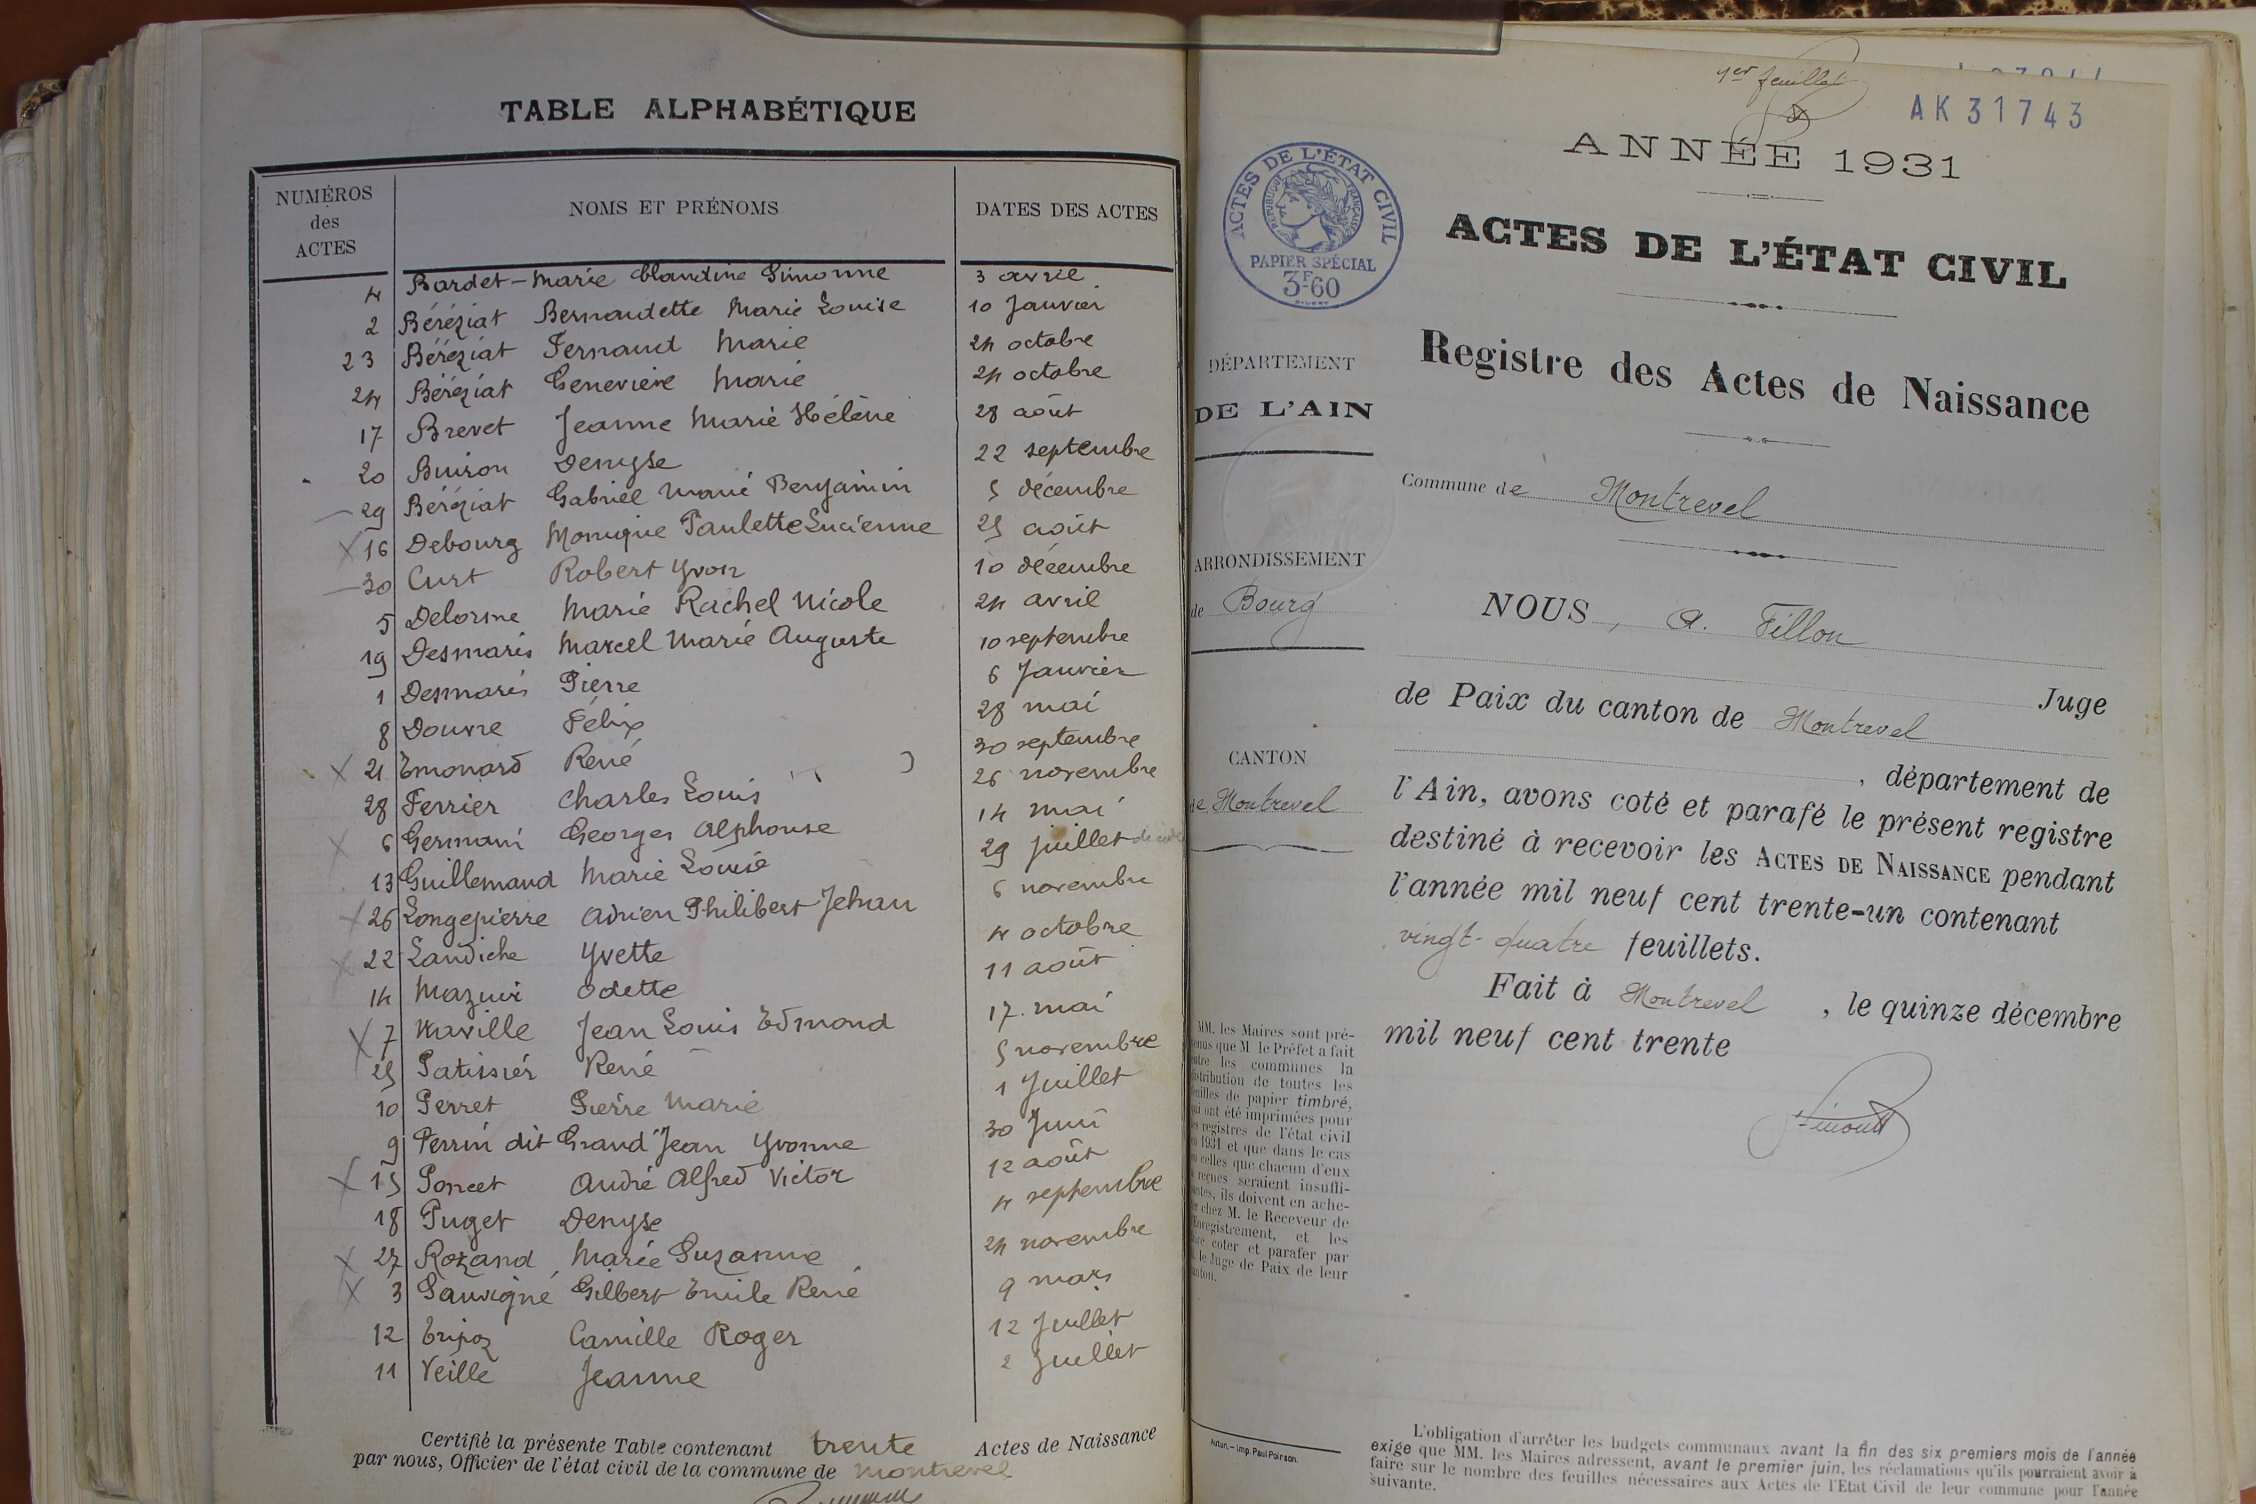 TABLE ALPHABÉTIQUE
NUMÉROS des ACTES NOMS ET PRÉNOMS DATES DES ACTES
4 Bardet - Marie Claudine Simonne 3 avril
2 Béréziat Bernadette Marie Louise 10 Janvier
23 Béréziat Fernand Marie 24 octobre
24 Béréziat Geneviève Marie 24 octobre
17 Brevet Jeanne Marie Hélène 28 août
20 Buiron Denyse 22 septembre
29 Béréziat Gabriel Marie Benjamin 5 décembre
16 Debourg Monique Paulette Lucienne 25 août
30 Curt Robert Yvon 10 décembre
5 Delorme Marie Rachel Nicole 24 avril
19 Desmaris Marcel Marie Auguste 10 septembre
1 Desmaris Pierre 6 Janvier
8 Douvre Félix 28 mai
21 Emonard René 30 septembre
28 Ferrier Charles Louis 26 novembre
6 Germani Georges Alphonse 14 mai
13 Guillemaud Marie Louise 29 juillet
26 Longepierre Adrien Philibert Jehan 6 novembre
22 Landiche Yvette 4 octobre
14 Mazuir Odette 11 août
7 Naville Jean Louis Edmond 17 mai
25 Patissier René 5 novembre
10 Perret Pierre Marie 1 Juillet
9 Perrin dit Grand Jean Yvonne 30 Juin
15 Poncet André Alfred Victor 12 août
18 Puget Denyse 4 septembre
27 Rozand Marie Suzanne 24 novembre
3 Sauvigné Gilbert Emile René 9 mars
12 Tripoz Camille Roger 12 Juillet
11 Veille Jeanne 2 Juillet
Certifié la présente Table contenant trente Actes de Naissance
par nous, Officier de l'état civil de la commune de Montrevel
1er feuillet
AK 31743
ANNÉE 1931
ACTES DE L'ÉTAT CIVIL
RÉPUBLIQUE FRANÇAISE
PAPIER SPÉCIAL
3F60
ACTES DE L'ÉTAT CIVIL
Registre des Actes de Naissance
DÉPARTEMENT
DE L'AIN
Commune de Montrevel
ARRONDISSEMENT
de Bourg
NOUS, A. Fillon
Juge
de Paix du canton de Montrevel
CANTON
de Montrevel
, département de
l'Ain, avons coté et parafé le présent registre
destiné à recevoir les ACTES DE NAISSANCE pendant
l'année mil neuf cent trente-un contenant
vingt-quatre feuillets.
Fait à Montrevel, le quinze décembre
mil neuf cent trente
MM. les Maires sont pré-
venus que M. le Préfet a fait
entre les communes la
distribution de toutes les
feuilles de papier timbré,
qui ont été imprimées pour
les registres de l'état civil
en 1931 et que dans le cas
où celles que chacun d'eux
a reçues seraient insuffi-
santes, ils doivent en ache-
ter chez M. le Receveur de
l'Enregistrement, et les
faire coter et parafer par
M. le Juge de Paix de leur
canton.
Autun. — Imp. Paul Poirson.
L'obligation d'arrêter les budgets communaux avant la fin des six premiers mois de l'année
exige que MM. les Maires adressent, avant le premier juin, les réclamations qu'ils pourraient avoir à
faire sur le nombre des feuilles nécessaires aux Actes de l'Etat Civil de leur commune pour l'année
suivante.